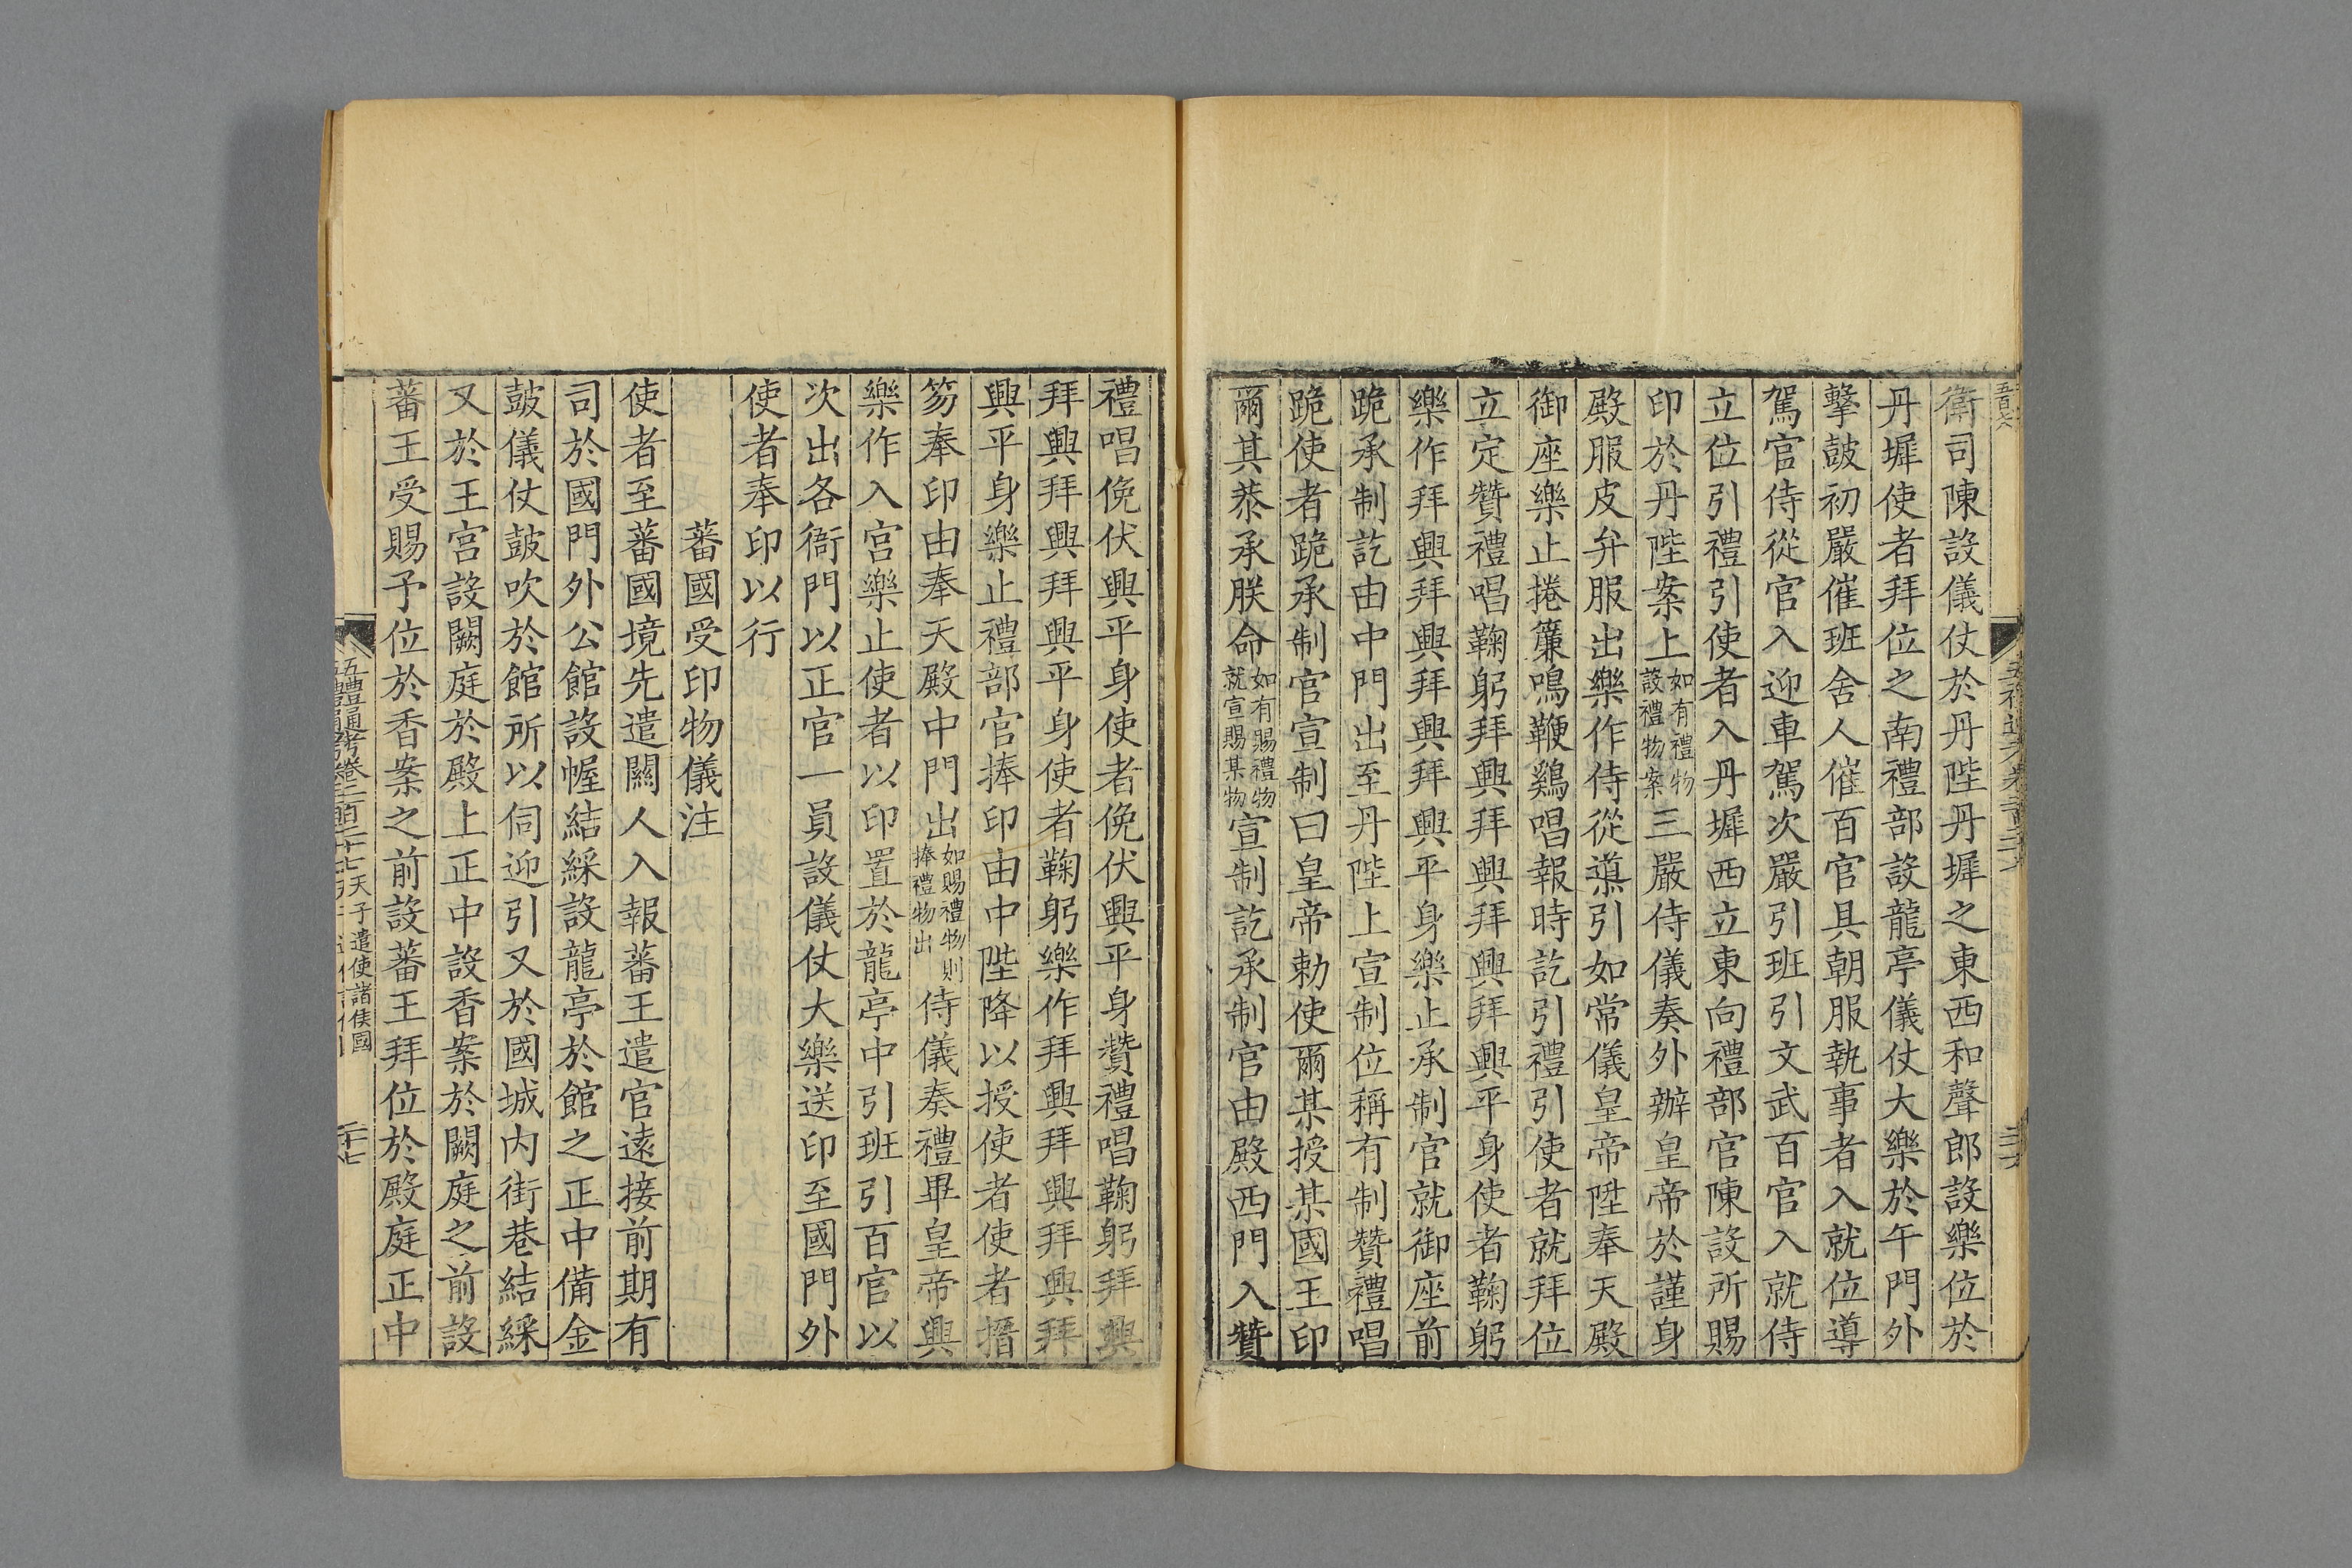 衛司陳設儀仗於丹陛丹墀之東西和聲郎設樂位於
丹墀使者拜位之南禮部設龍亭儀仗大樂於午門外
擊鼓初嚴催班舍人催百官具朝服執事者入就位導
駕官侍從官入迎車駕次嚴引班引文武百官入就侍
立位引禮引使者入丹墀西立東向禮部官陳設所賜
印於丹陛案上如有禮物設禮物案三嚴侍儀奏外辦皇帝於謹身
殿服皮弁服出樂作侍從導引如常儀皇帝陞奉天殿
御座樂止捲簾鳴鞭鷄唱報時訖引禮引使者就拜位
立定贊禮唱鞠躬拜興拜興拜興拜興平身使者鞠躬
樂作拜興拜興拜興拜興平身樂止承制官就御座前
跪承制訖由中門出至丹陛上宣制位稱有制贊禮唱
跪使者跪承制官宣制曰皇帝勅使爾某授某國王印
爾其恭承朕命如有賜禮物就宣賜某物宣制訖承制官由殿西門入贊
禮唱俛伏興平身使者俛伏興平身贊禮唱鞠躬拜興
拜興拜興拜興平身使者鞠躬樂作拜興拜興拜興拜
興平身樂止禮部官捧印由中陛降以授使者使者搢
笏奉印由奉天殿中門出如賜禮物則捧禮物出侍儀奏禮畢皇帝興
樂作入宮樂止使者以印置於龍亭中引班引百官以
次出各衙門以正官一員設儀仗大樂送印至國門外
使者奉印以行
蕃國受印物儀注
使者至蕃國境先遣關人入報蕃王遣官遠接前期有
司於國門外公館設幄結綵設龍亭於館之正中備金
鼓儀仗鼓吹於館所以伺迎引又於國城內街巷結綵
又於王宮設闕庭於殿上正中設香案於闕庭之前設
蕃王受賜予位於香案之前設蕃王拜位於殿庭正中
五禮通考卷二百二十七 天子遣使諸侯國 二十七